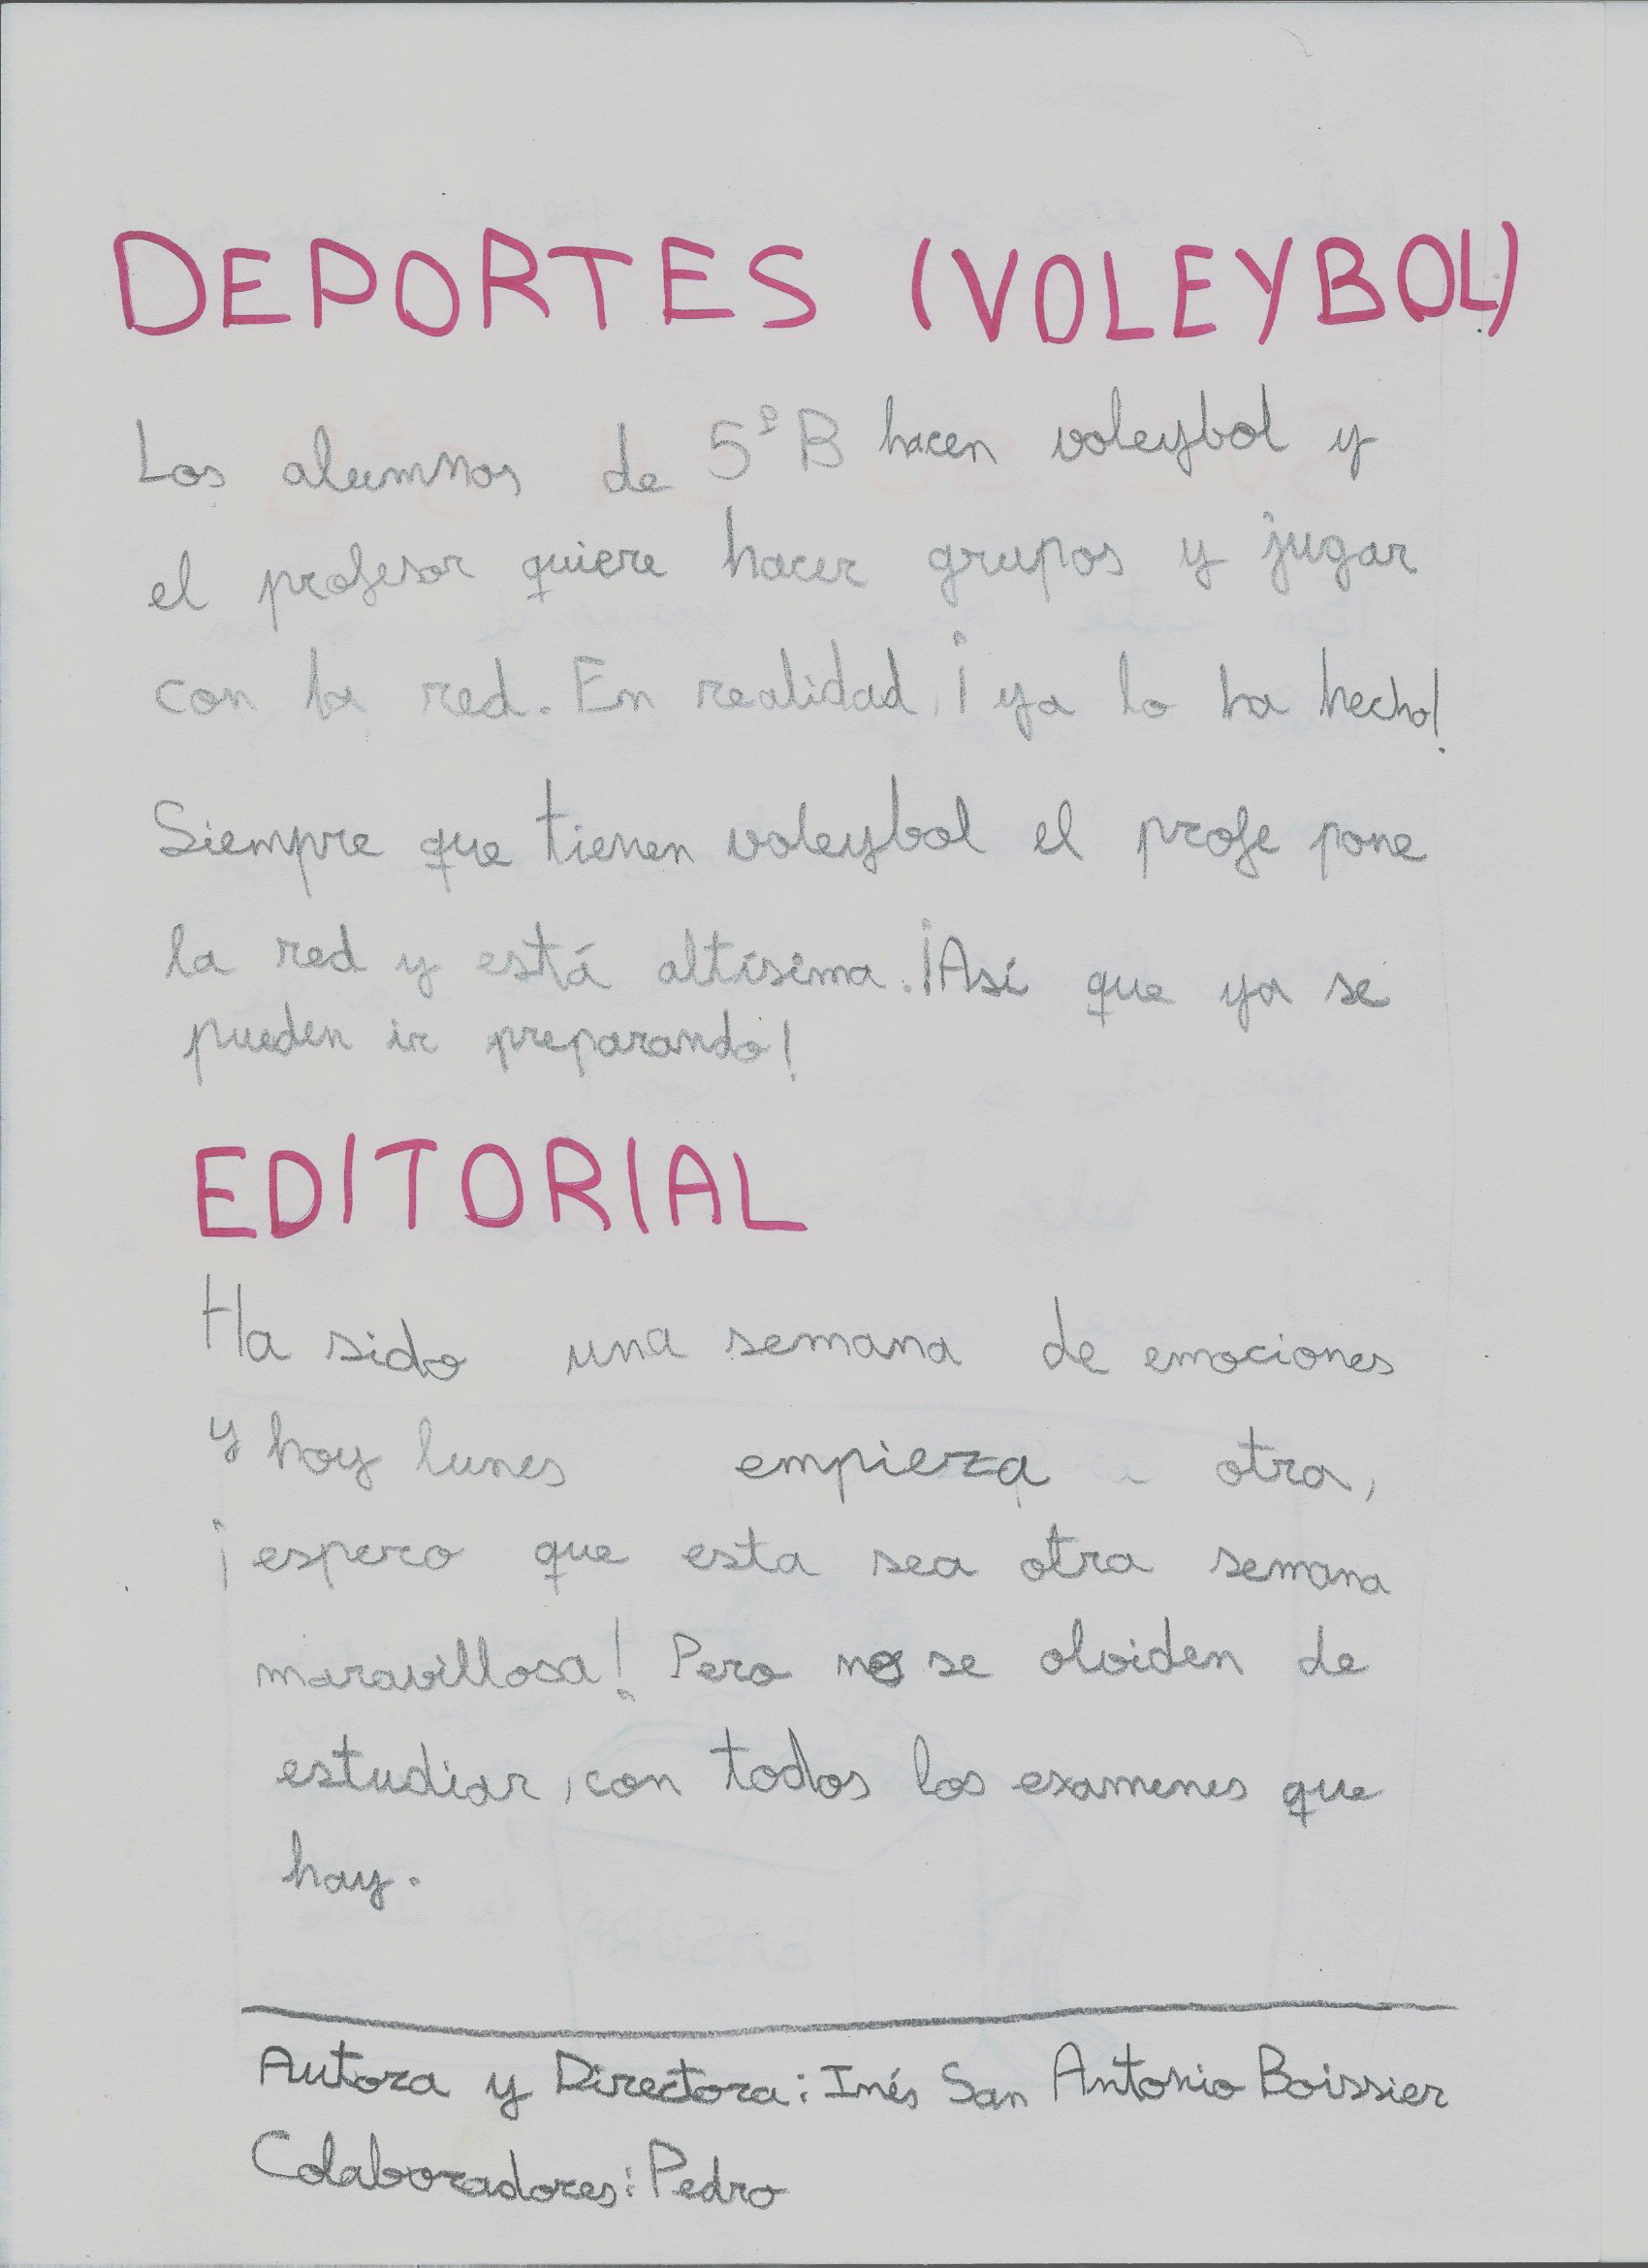 DEPORTES (VOLEYBOL)
Los alumnos de 5º B hacen voleybol y
el profesor quiere hacer grupos y jugar
con la red. En realidad, ¡ya lo ha hecho!
Siempre que tienen voleybol el profe pone
la red y está altísima. ¡Así que ya se
pueden ir preparando!
EDITORIAL
Ha sido una semana de emociones
y hoy lunes empieza otra,
¡espero que esta sea otra semana
maravillosa! Pero no se olviden de
estudiar, con todos los examenes que
hay.
Autora y Directora: Inés San Antonio Boissier
Colaboradores: Pedro